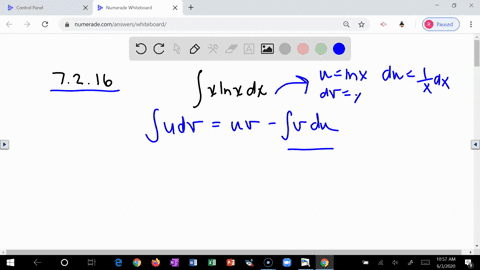 Control Panel
Numerade Whiteboard
numerade.com/answers/whiteboard/
Paused
7.2.16
∫x lnx dx
u = lnx du = 1/x dx
dv =
∫u dv = uv - ∫v du
10:57 AM
6/3/2020